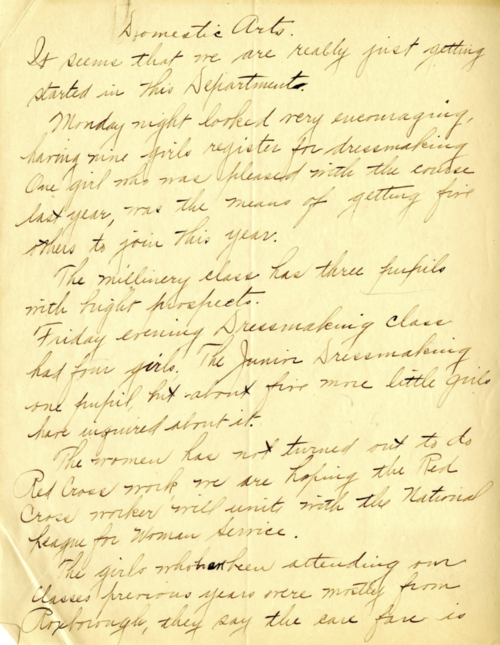 Domestic Arts.
It seems that we are really just getting
started in this Department.
Monday night looked very encouraging,
having nine girls register for dressmaking
One girl who was pleased with the course
last year, was the means of getting five
others to join this year.
The millinery class has three pupils
with bright prospects.
Friday evening Dressmaking Class
had four girls. The Junior Dressmaking
one pupil, but about five more little girls
have inquired about it.
The women has not turned out to do
Red Cross work, we are hoping the Red
Cross worker will unite with the National
League for Woman Service.
The girls who been attending our
classes previous years were mostly from
Roxborough, they say the care fare is